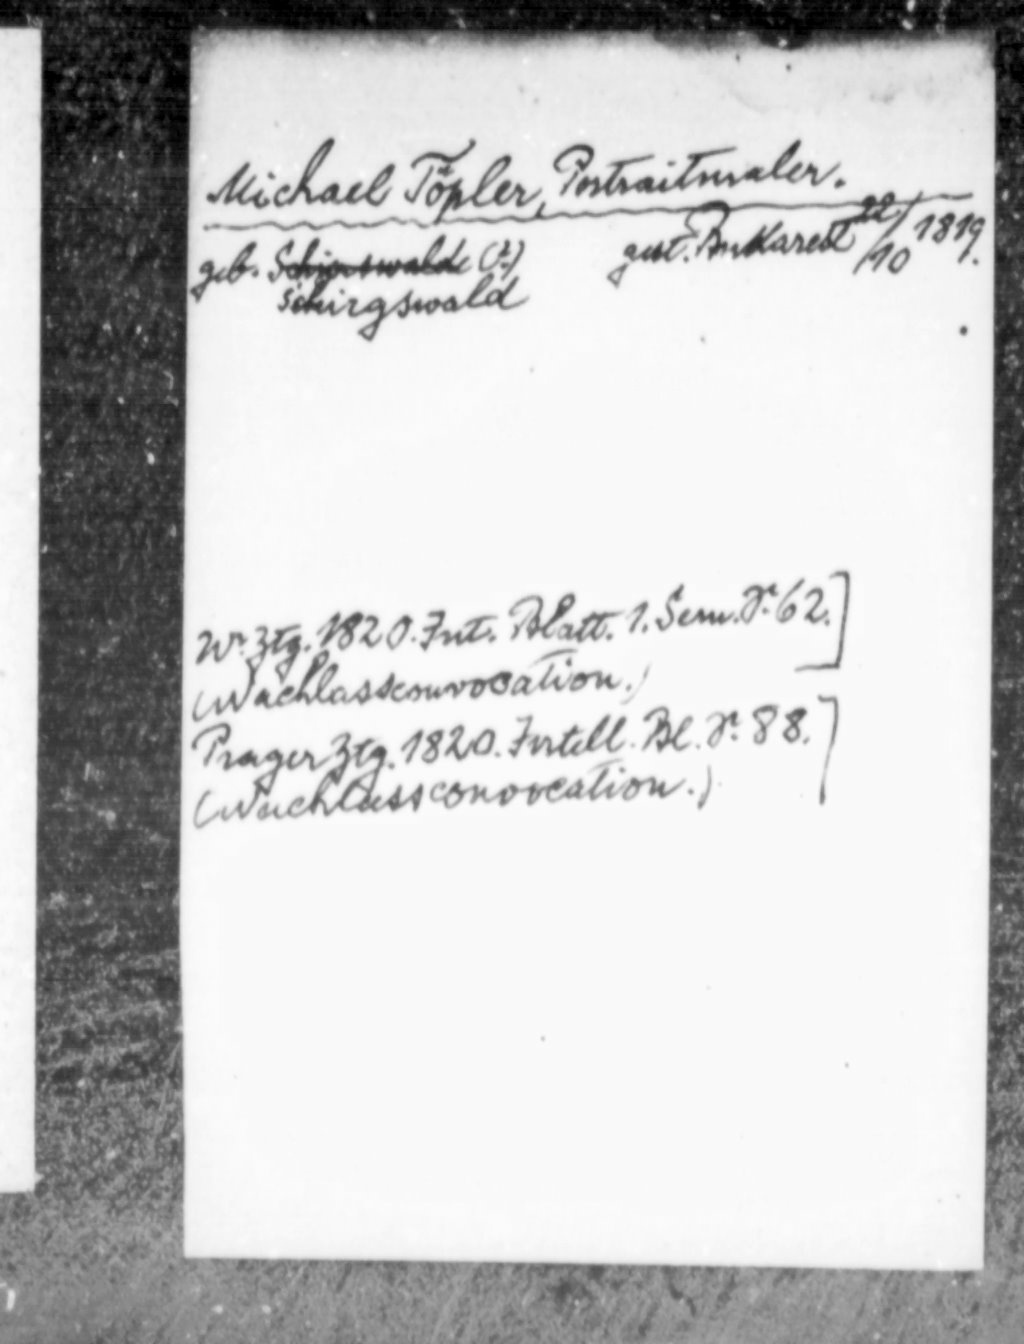 Michael Töpler, Portraitmaler.
geb. Schirgswalde (?) gest. Bukarest 22/10 1819.
Schirgswald
Wr. Ztg. 1820. Int. Blatt. 1. Sem. Nr. 62.]
(Nachlassconvocation.)
Prager Ztg. 1820. Intell. Bl. Nr. 88.]
(Nachlassconvocation.)